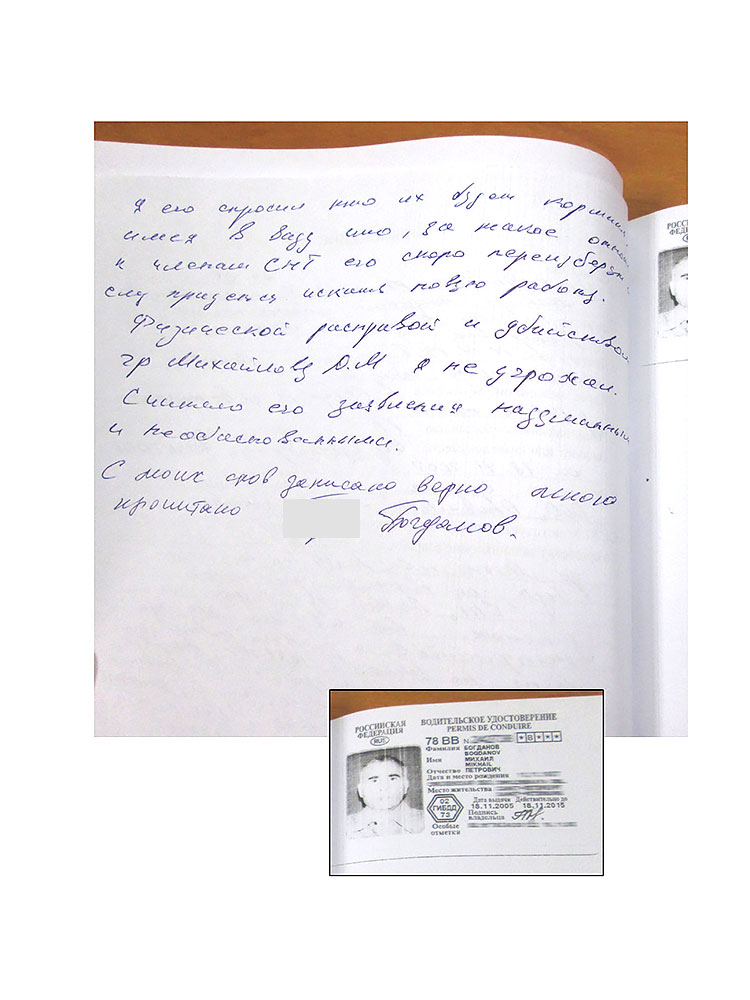 Я его спросил кто их будет кормить
имея в виду что, за такое отнош
к членам СНТ его скоро переизберут и
ему придется искать новую работу.
Физической расправой и убийством
гр Михайлову О.М я не угрожал.
Считаю его заявления надуманным
и необоснованными.
С моих слов записано верно мною
прочитано Богданов.
РОССИ
ФЕДЕР
РОССИЙСКАЯ
ФЕДЕРАЦИЯ
RUS
ВОДИТЕЛЬСКОЕ УДОСТОВЕРЕНИЕ
PERMIS DE CONDUIRE
78 ВВ N *В***
Фамилия БОГДАНОВ
BOGDANOV
Имя МИХАИЛ
MIKHAIL
Отчество ПЕТРОВИЧ
Дата и место рождения
Место жительства
02
ГИБДД
73
Дата выдачи Действительно до
18.11.2005 18.11.2015
Подпись
владельца
Особые
отметки